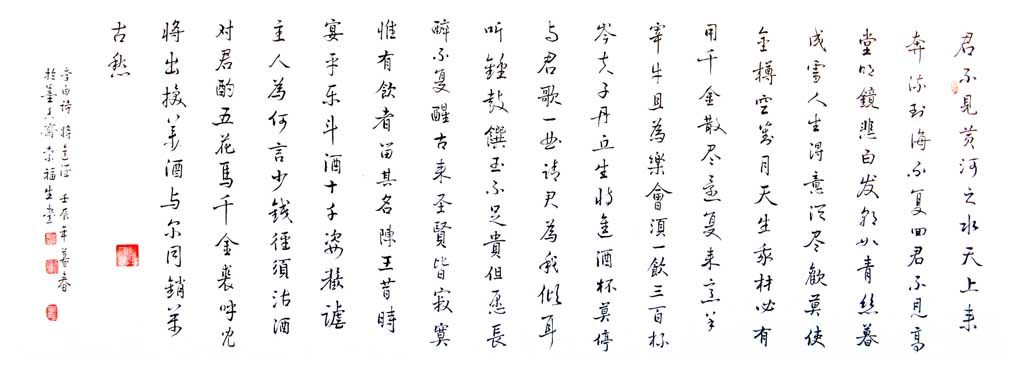 君不见黄河之水天上来
奔流到海不复回君不见高
堂明镜悲白发朝如青丝暮
成雪人生得意须尽欢莫使
金樽空对月天生我材必有
用千金散尽还复来烹羊
宰牛且為樂會須一飲三百杯
岑夫子丹丘生將進酒杯莫停
与君歌一曲请君為我倾耳
听鍾鼓饌玉不足貴但愿長
醉不复醒古来圣賢皆寂寞
惟有飲者留其名陳王昔時
宴平乐斗酒十千恣欢谑
主人為何言少錢徑須沽酒
对君酌五花馬千金裘呼兒
将出换美酒与尔同銷万
古愁
李白诗将進酒壬辰年暮春
於墨香齋 福生書